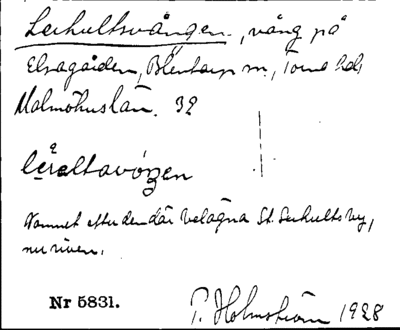 Lerhultsvången, vång på
Elsagården, Blentarp sn., Torna hd,
Malmöhus län. 32
Namnet efter den där belägna St. Lerhults by,
nu riven.
Nr 5831.
P. Holmström 1928